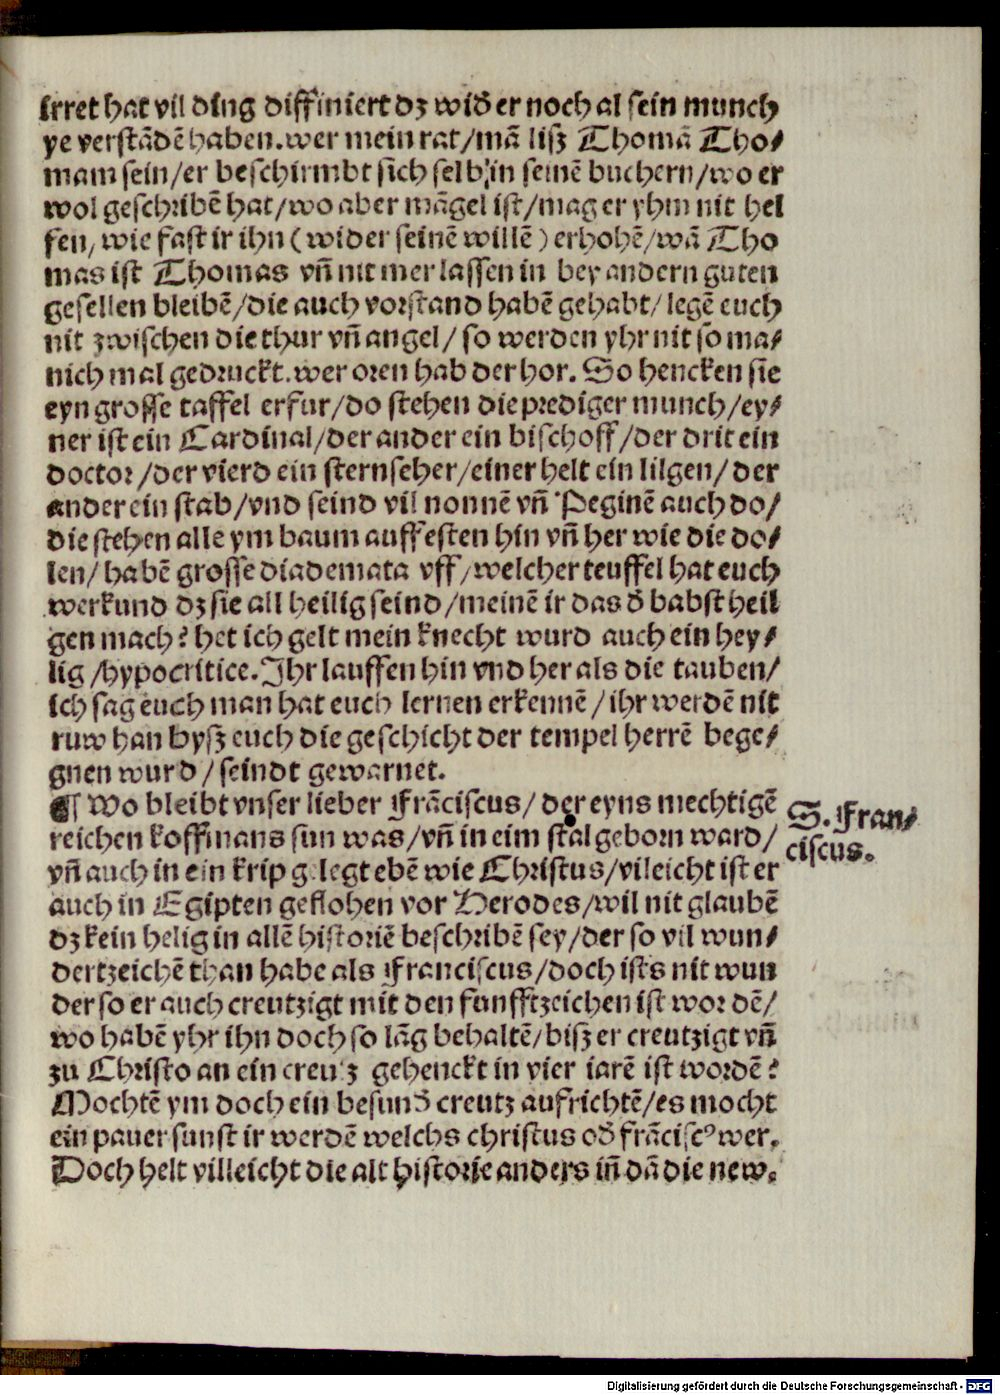 irret hat vil ding diffiniert dz wid̄ er noch al sein munch
ye verstādē haben. wer mein rat/mā lisz Thomā Tho⸗
mam sein/er beschirmbt sich selb in seinē buchern/wo er
wol geschribē hat/wo aber māgel ist/mag er yhm nit hel
fen/ wie fast ir ihn (wider seinē willē) erhohē/wā Tho
mas ist Thomas vn̄ nit mer lassen in bey andern guten
gesellen bleibē/die auch vorstand habē gehabt/legē euch
nit zwischen die thur vn̄ angel/ so werden yhr nit so ma⸗
nich mal gedruckt. wer oren hab der hor. So hencken sie
eyn grosse taffel erfur/do stehen die prediger munch/ey⸗
ner ist ein Cardinal/der ander ein bischoff/der drit ein
doctor/der vierd ein sternseher/einer helt ein lilgen/der
ander ein stab/vnd seind vil nonnē vn̄ Peginē auch do/
die stehen alle ym baum auff esten hin vn̄ her wie die do⸗
len/ habē grosse diademata vff/welcher teuffel hat euch
werkund dz sie all heilig seind/meinē ir das d̄ babst heil
gen mach? het ich gelt mein knecht wurd auch ein hey⸗
lig/hypocritice. Ihr lauffen hin vnd her als die tauben/
ich sag euch man hat euch lernen erkennē/ihr werdē nit
ruw han bysz euch die geschicht der tempel herrē bege⸗
gnen wurd/seindt gewarnet.
¶ Wo bleibt vnser lieber Frāciscus/ der eyns mechtigē
reichen koffmans sun was/vn̄ in eim stal geborn ward/
vn̄ auch in ein krip gelegt ebē wie Christus/vileicht ist er
auch in Egipten geflohen vor Herodes/wil nit glaubē
dz kein helig in allē historiē beschribē sey/der so vil wun⸗
dertzeichē than habe als Franciscus/doch ists nit wun
der so er auch creutzigt mit den funfftzeichen ist wordē/
wo habē yhr ihn doch so lāg behaltē/bisz er creutzigt vn̄
zu Christo an ein creutz gehenckt in vier iarē ist wordē?
Mochtē ym doch ein besund̄ creutz aufrichtē/es mocht
ein pauer sunst ir werdē welchs christus od̄ frācisc⁹ wer.
Doch helt villeicht die alt historie anders in̄ dā die new.
S. Fran⸗
ciscus.
Digitalisierung gefördert durch die Deutsche Forschungsgemeinschaft - DFG